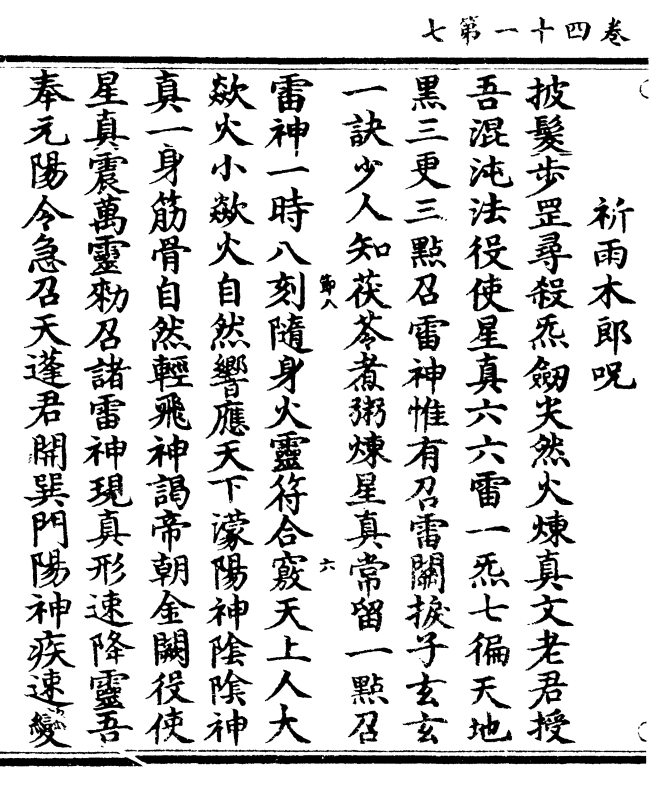 卷四十一第七
祈雨木郎呪
披髮步罡尋殺炁劒尖然火煉真文老君授
吾混沌法役使星真六六雷一炁七徧天地
黑三更三點召雷神惟有召雷關捩子玄玄
一訣少人知茯苓煮粥煉星真常留一點召
節八 六
雷神一時八刻隨身火靈符合竅天上人大
歘火小歘火自然響應天下濛陽神陰陰神
真一身筋骨自然輕飛神謁帝朝金闕役使
星真震萬靈勑召諸雷神現真形速降靈吾
奉元陽令急召天蓬君開巽門陽神疾速變